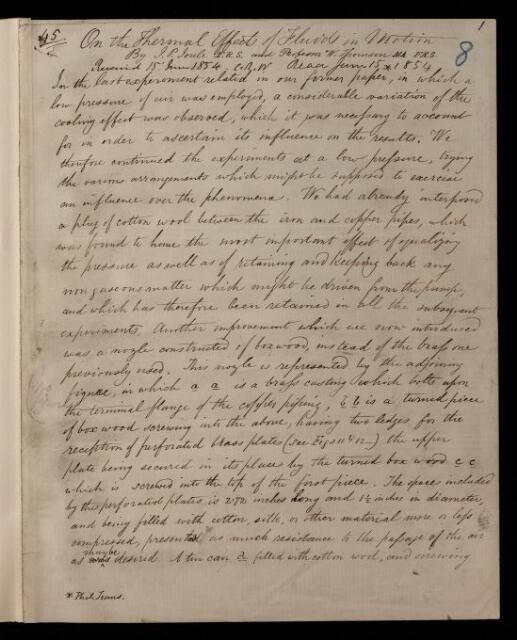 1
45
On the Thermal Effects of Fluids in Motion
8
By J. P. Joule F.R.S. and Professor W. Thomson MA F.R.S.
Received 15 June 1854 Read June 15, 1854
In the last experiment related in our former paper,* in which a
low pressure of air was employed, a considerable variation of the
cooling effect was observed, which it was necessary to account
for in order to ascertain its influence on the results. We
therefore continued the experiments at a low pressure, trying
the various arrangements which might be supposed to exercise
an influence over the phenomena. We had already interposed
a plug of cotton wool between the iron and copper pipes, which
was found to have the most important effect of equalizing
the pressure as well as of retaining and keeping back any
non gaseous matter which might be driven from the pump,
and which has therefore been retained in all the subsequent
experiments. Another improvement which we now introduced
was a nozle constructed of boxwood, instead of the brass one
previously used. This nozle is represented by the adjoining
figure, in which a a is a brass casting which bolts upon
the terminal flange of the copper piping, b b is a turned piece
of box wood screwing into the above, having two ledges for the
reception of perforated brass plates (See Figs 11 & 12) the upper
plate being secured in its place by the turned box wood c c
which is screwed into the top of the first piece. The space included
by the perforated plates is 2.72 inches long and 1½ inches in diameter,
and being filled with cotton, silk, or other material more or less
compressed, presents as much resistance to the passage of the air
as may be desired. A tin can d filled with cotton wool, and screwing
* Phil. Trans.